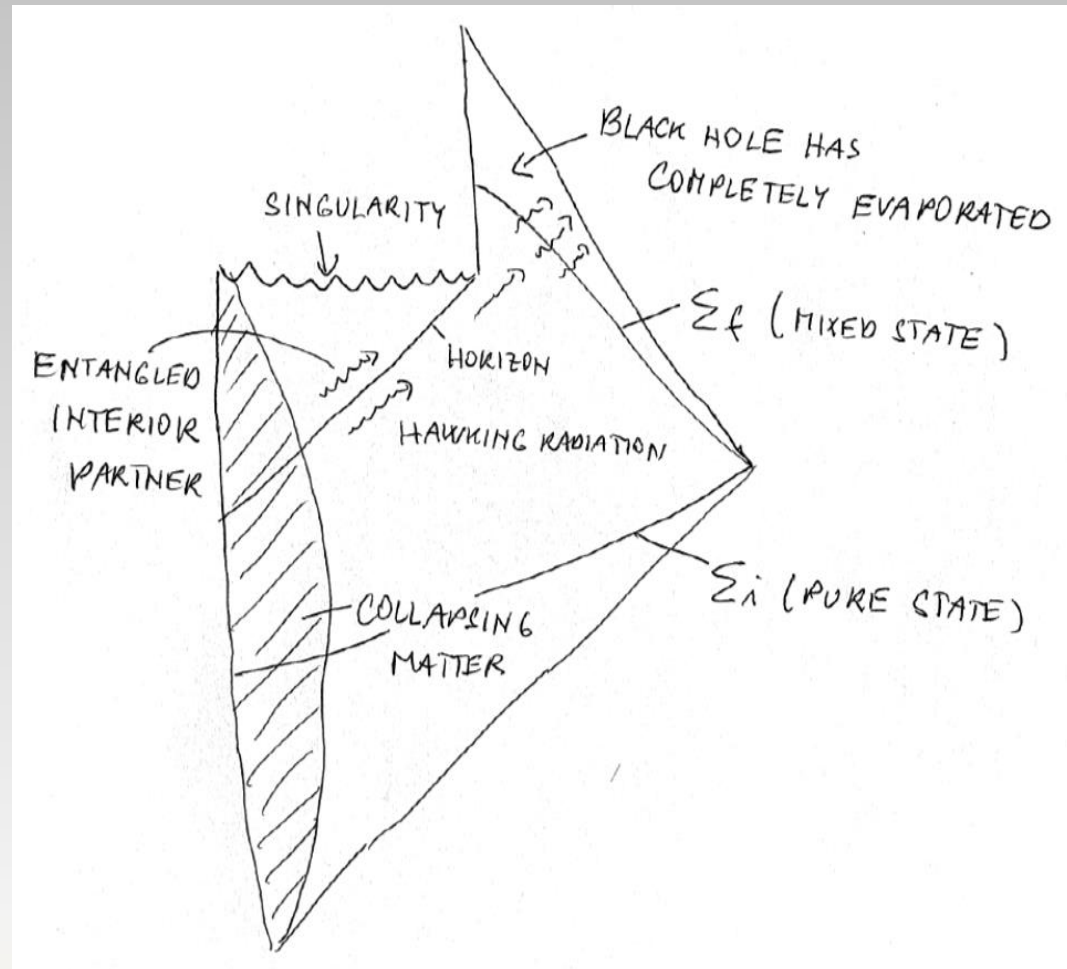 BLACK HOLE HAS
COMPLETELY EVAPORATED
SINGULARITY
Σf (MIXED STATE)
HORIZON
ENTANGLED
INTERIOR
PARTNER
HAWKING RADIATION
Σi (PURE STATE)
COLLAPSING
MATTER